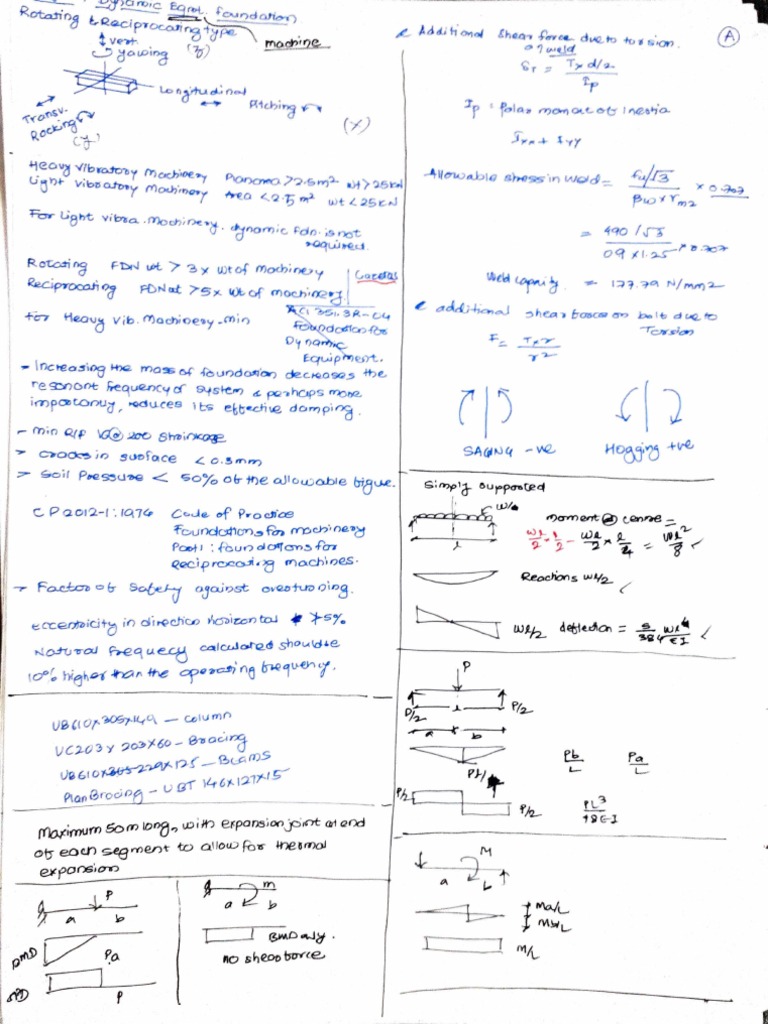 Dynamic Eqpt. foundation
Rotating & Reciprocating type
machine
vert.
yawing (z)
Longitudinal
Pitching
(x)
Transv.
Rocking
(y)
Heavy Vibratory Machinery Planarea > 2.5m² wt > 25kN
Light vibratory Machinery Area < 2.5 m² wt < 25KN
For Light vibra. Machinery. dynamic fdn. is not
required.
Rotating FDN wt > 3 x wt of machinery
Reciprocating FDN wt > 5x wt of machinery
For Heavy Vib. Machinery - min
ACI 351.3R-04
Foundation for
Dynamic
Equipment.
- Increasing the mass of foundation decreases the
resonant frequency of system & perhaps more
importantly, reduces its effective damping.
- min R/F 16@200 Shrinkage
→ cracks in surface < 0.3mm
→ Soil Pressure < 50% of the allowable figure.
CP 2012-1:1974 Code of Practice
Foundations for machinery
Part 1: foundations for
reciprocating machines.
→ Factor of Safety against overturning.
Eccentricity in direction horizontal ≯ 5%
Natural frequecy calculated should be
10% higher than the operating frequency.
UB610x305x149 - Column
UC203 x 203x60 - Bracing
UB610x229x125 - Beams
Plan Bracing - UBT 146x127x15
Maximum 50m long, with expansion joint at end
of each segment to allow for thermal
expansion
P
a b
BMD
P.a
SFD
P
m
a b
BMD only.
no shear force
A
Additional Shear force due to torsion.
of weld
Sr = T x d/2 / Ip
Ip = Polar moment of Inertia
Ixx + Iyy
Allowable stress in weld = fu/√3 / βw x γm2 x 0.707
= 490/√3 / 0.9 x 1.25 x 0.707
Weld capacity = 177.79 N/mm2
additional shear force on bolt due to
Torsion
F = T x r / r²
SAGING -ve Hogging +ve
Simply supported
moment @ centre =
wl/2 · l/2 - wl/2 x l/4 = wl²/8
l
Reactions wl/2
wl/2 deflection = 5/384 wl⁴/EI
P
P/2 l P/2
a b
Pb/L Pa/L
P/2
P/2 PL³/48EI
M
a b
Ma/L
M/L